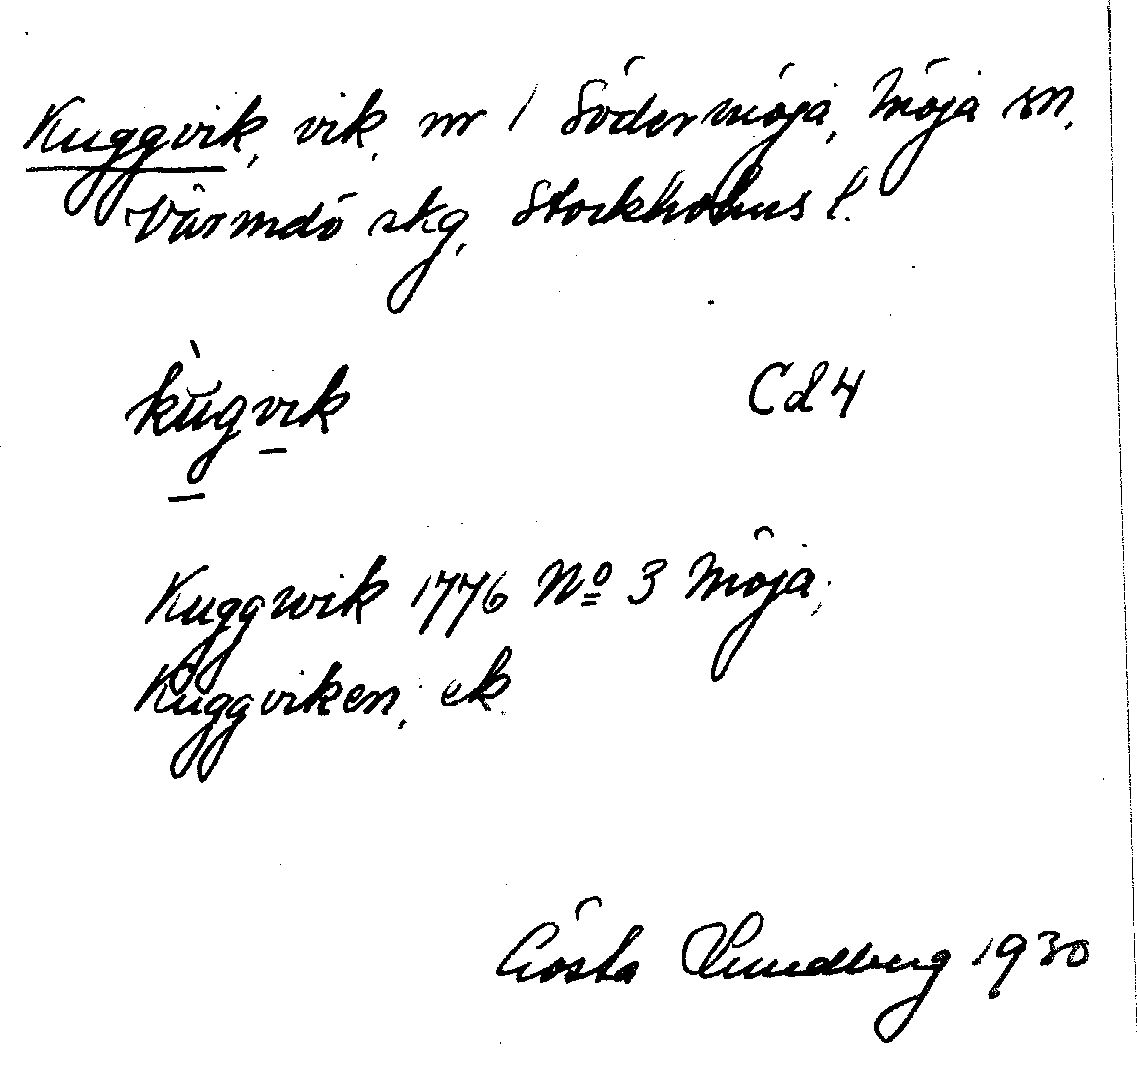 Kuggvik, vik, nr 1 Södermöja, Möja sn,
Värmdö skg, Stockholms l.
kùgvik Cd4
Kuggwik 1776 Nº 3 Möja;
Kuggviken, ek.
Gösta Lundberg 1930